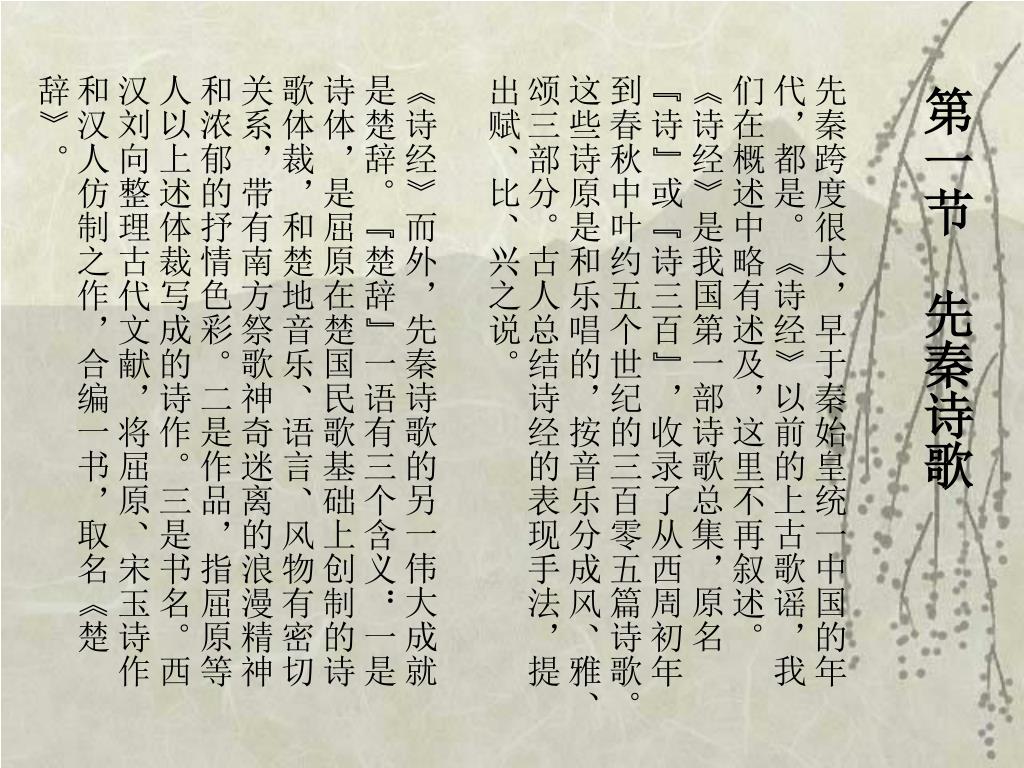 第一节　先秦诗歌
先秦跨度很大，早于秦始皇统一中国的年
代，都是。《诗经》以前的上古歌谣，我
们在概述中略有述及，这里不再叙述。
《诗经》是我国第一部诗歌总集，原名
『诗』或『诗三百』，收录了从西周初年
到春秋中叶约五个世纪的三百零五篇诗歌。
这些诗原是和乐唱的，按音乐分成风、雅、
颂三部分。古人总结诗经的表现手法，提
出赋、比、兴之说。
《诗经》而外，先秦诗歌的另一伟大成就
是楚辞。『楚辞』一语有三个含义：一是
诗体，是屈原在楚国民歌基础上创制的诗
歌体裁，和楚地音乐、语言、风物有密切
关系，带有南方祭歌神奇迷离的浪漫精神
和浓郁的抒情色彩。二是作品，指屈原等
人以上述体裁写成的诗作。三是书名。西
汉刘向整理古代文献，将屈原、宋玉诗作
和汉人仿制之作，合编一书，取名《楚
辞》。